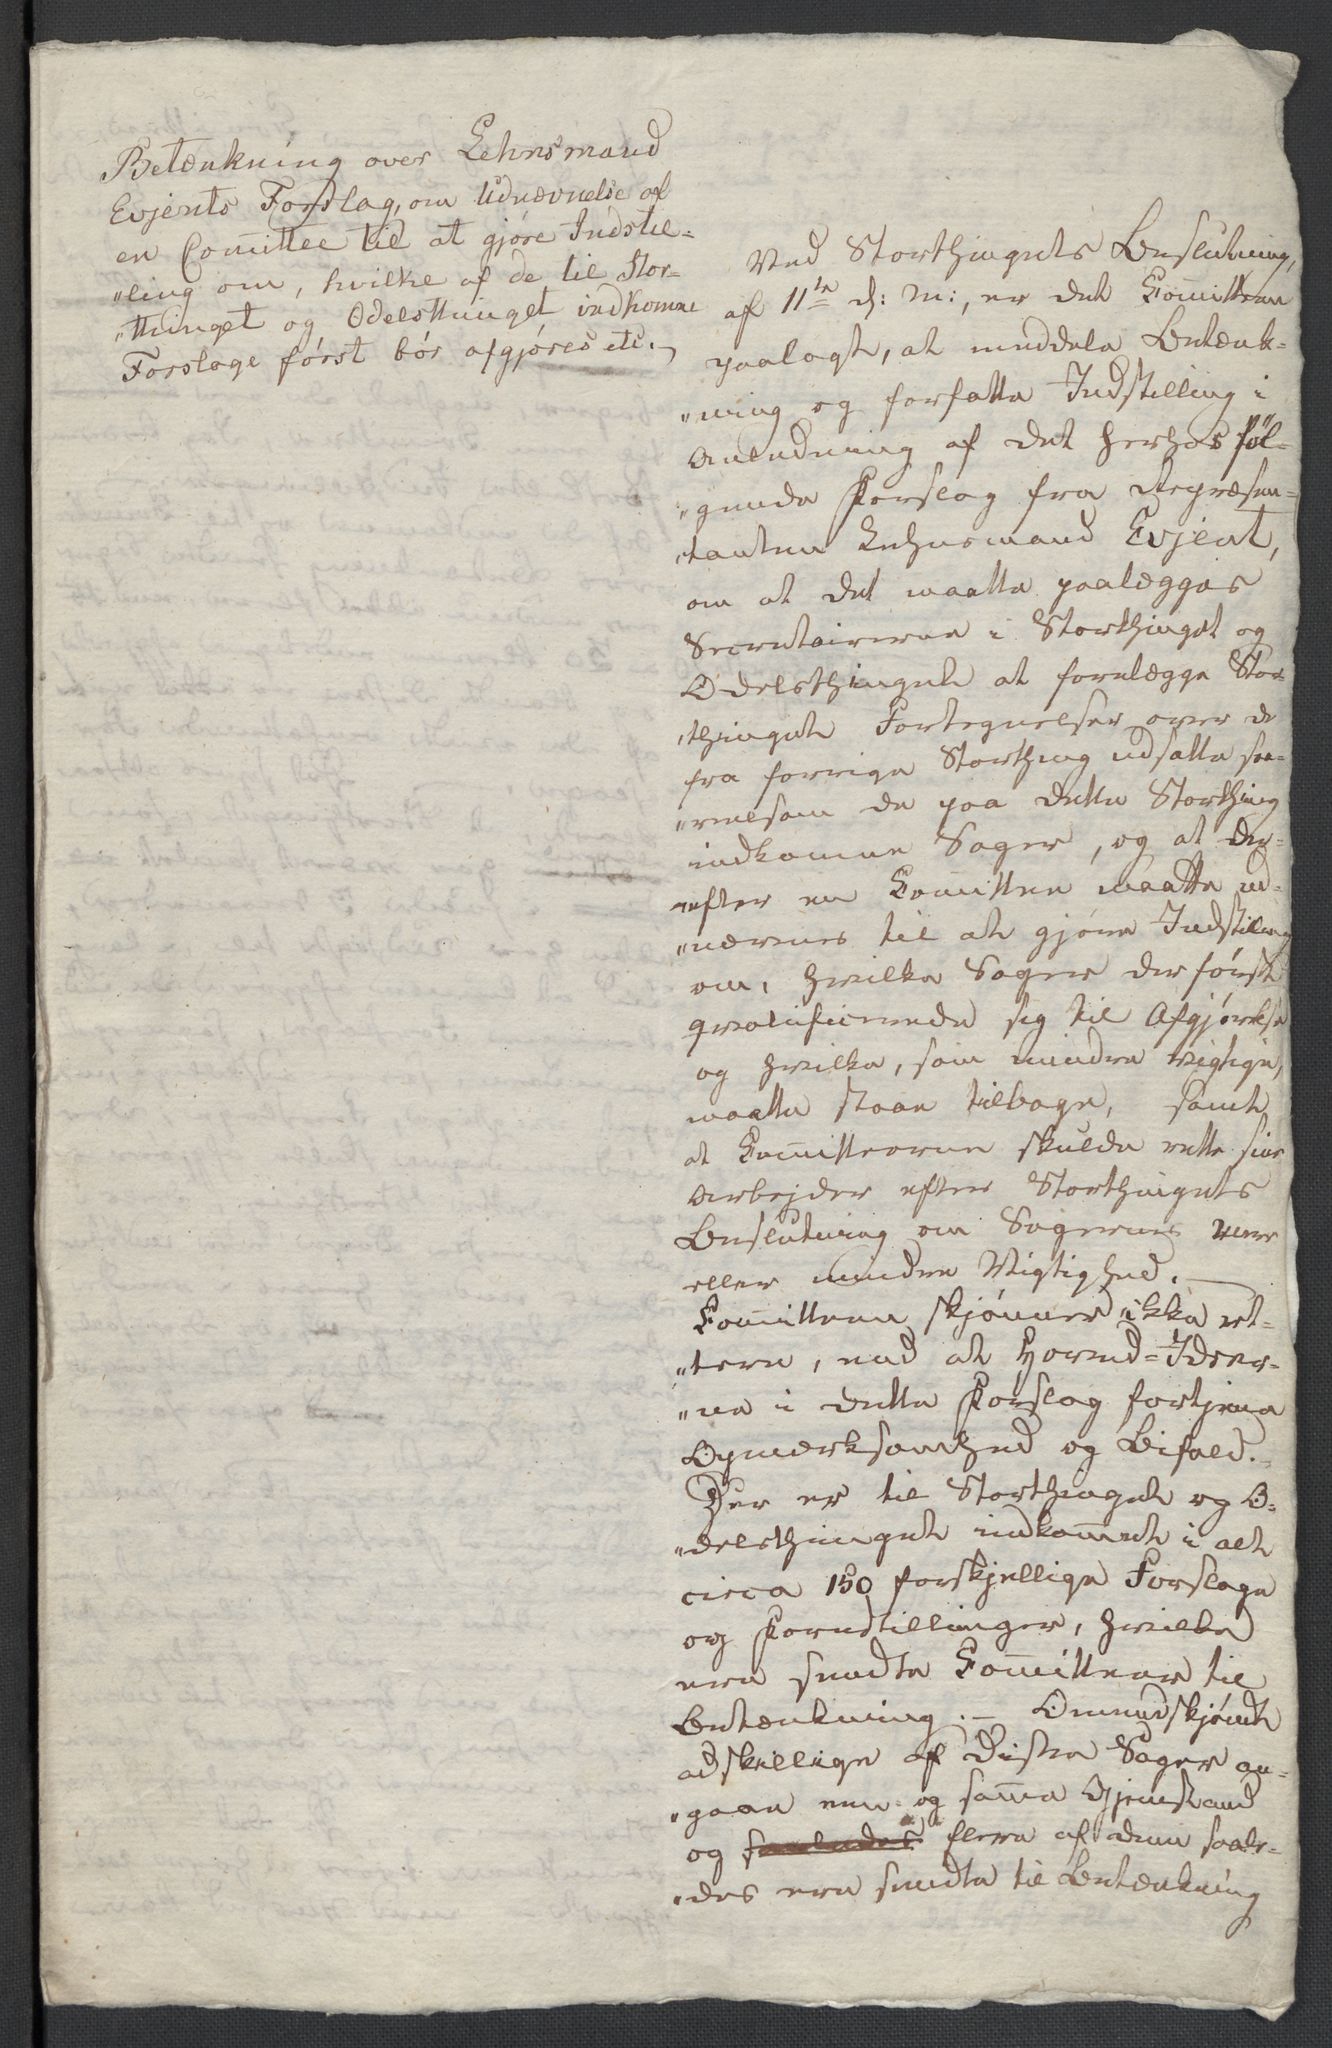 Betænkning over Lehnsmand
Evjents Forslag, om Udnævnelse af
en Com̄ittee til at gjøre Indstil=
"ling om, hvilke af de til Stor=
"thinget og Odelsthinget indkomne
Forslage først bør afgjøres etc.
Ved Storthingets Beslutning,
af 11te d: M:, er det Com̄itteen
paalagt, at meddele Betænk=
"ning og forfatte Indstilling i
Anledning af det herhos føl=
"gende Forslag fra Repræsen=
"tanten Lehnsmand Evjent,
om at det maatte paalægges
Secretairerne i Storthinget og
Odelsthinget at forelægge Stor=
"thinget Fortegnelser over de
fra forrige Storthing udsatte saa=
"velsom de paa dette Storthing
indkomne Sager, og at der=
"efter en Com̄ittee maatte ud=
"nævnes til at gjøre Indstilling
om, hvilke Sager der først
qvalificerede sig til Afgjørelse
og hvilke, som mindre vigtige,
maatte staae tilbage, samt
at Com̄itteerne skulde rette sine
Arbejder efter Storthingets
Beslutning om Sagernes mere
eller mindre Vigtighed.
Com̄itteen skjønner ikke ret=
"tere, end at Hoved=Ideer=
"ne i dette Forslag fortjene
Opmærksomhed og Bifald.
Der er til Storthinget og O=
"delsthinget indkom̄et i alt
circa 150 forskjellige Forslage
og Forestillinger, hvilke
ere sendte Com̄itteer til
Betænkning. — Omendskjøndt
adskillige af disse Sager an=
"gaae een og sam̄e Gjenstand
og saaledes flere af dem saale=
"des ere sendte til Betænkning